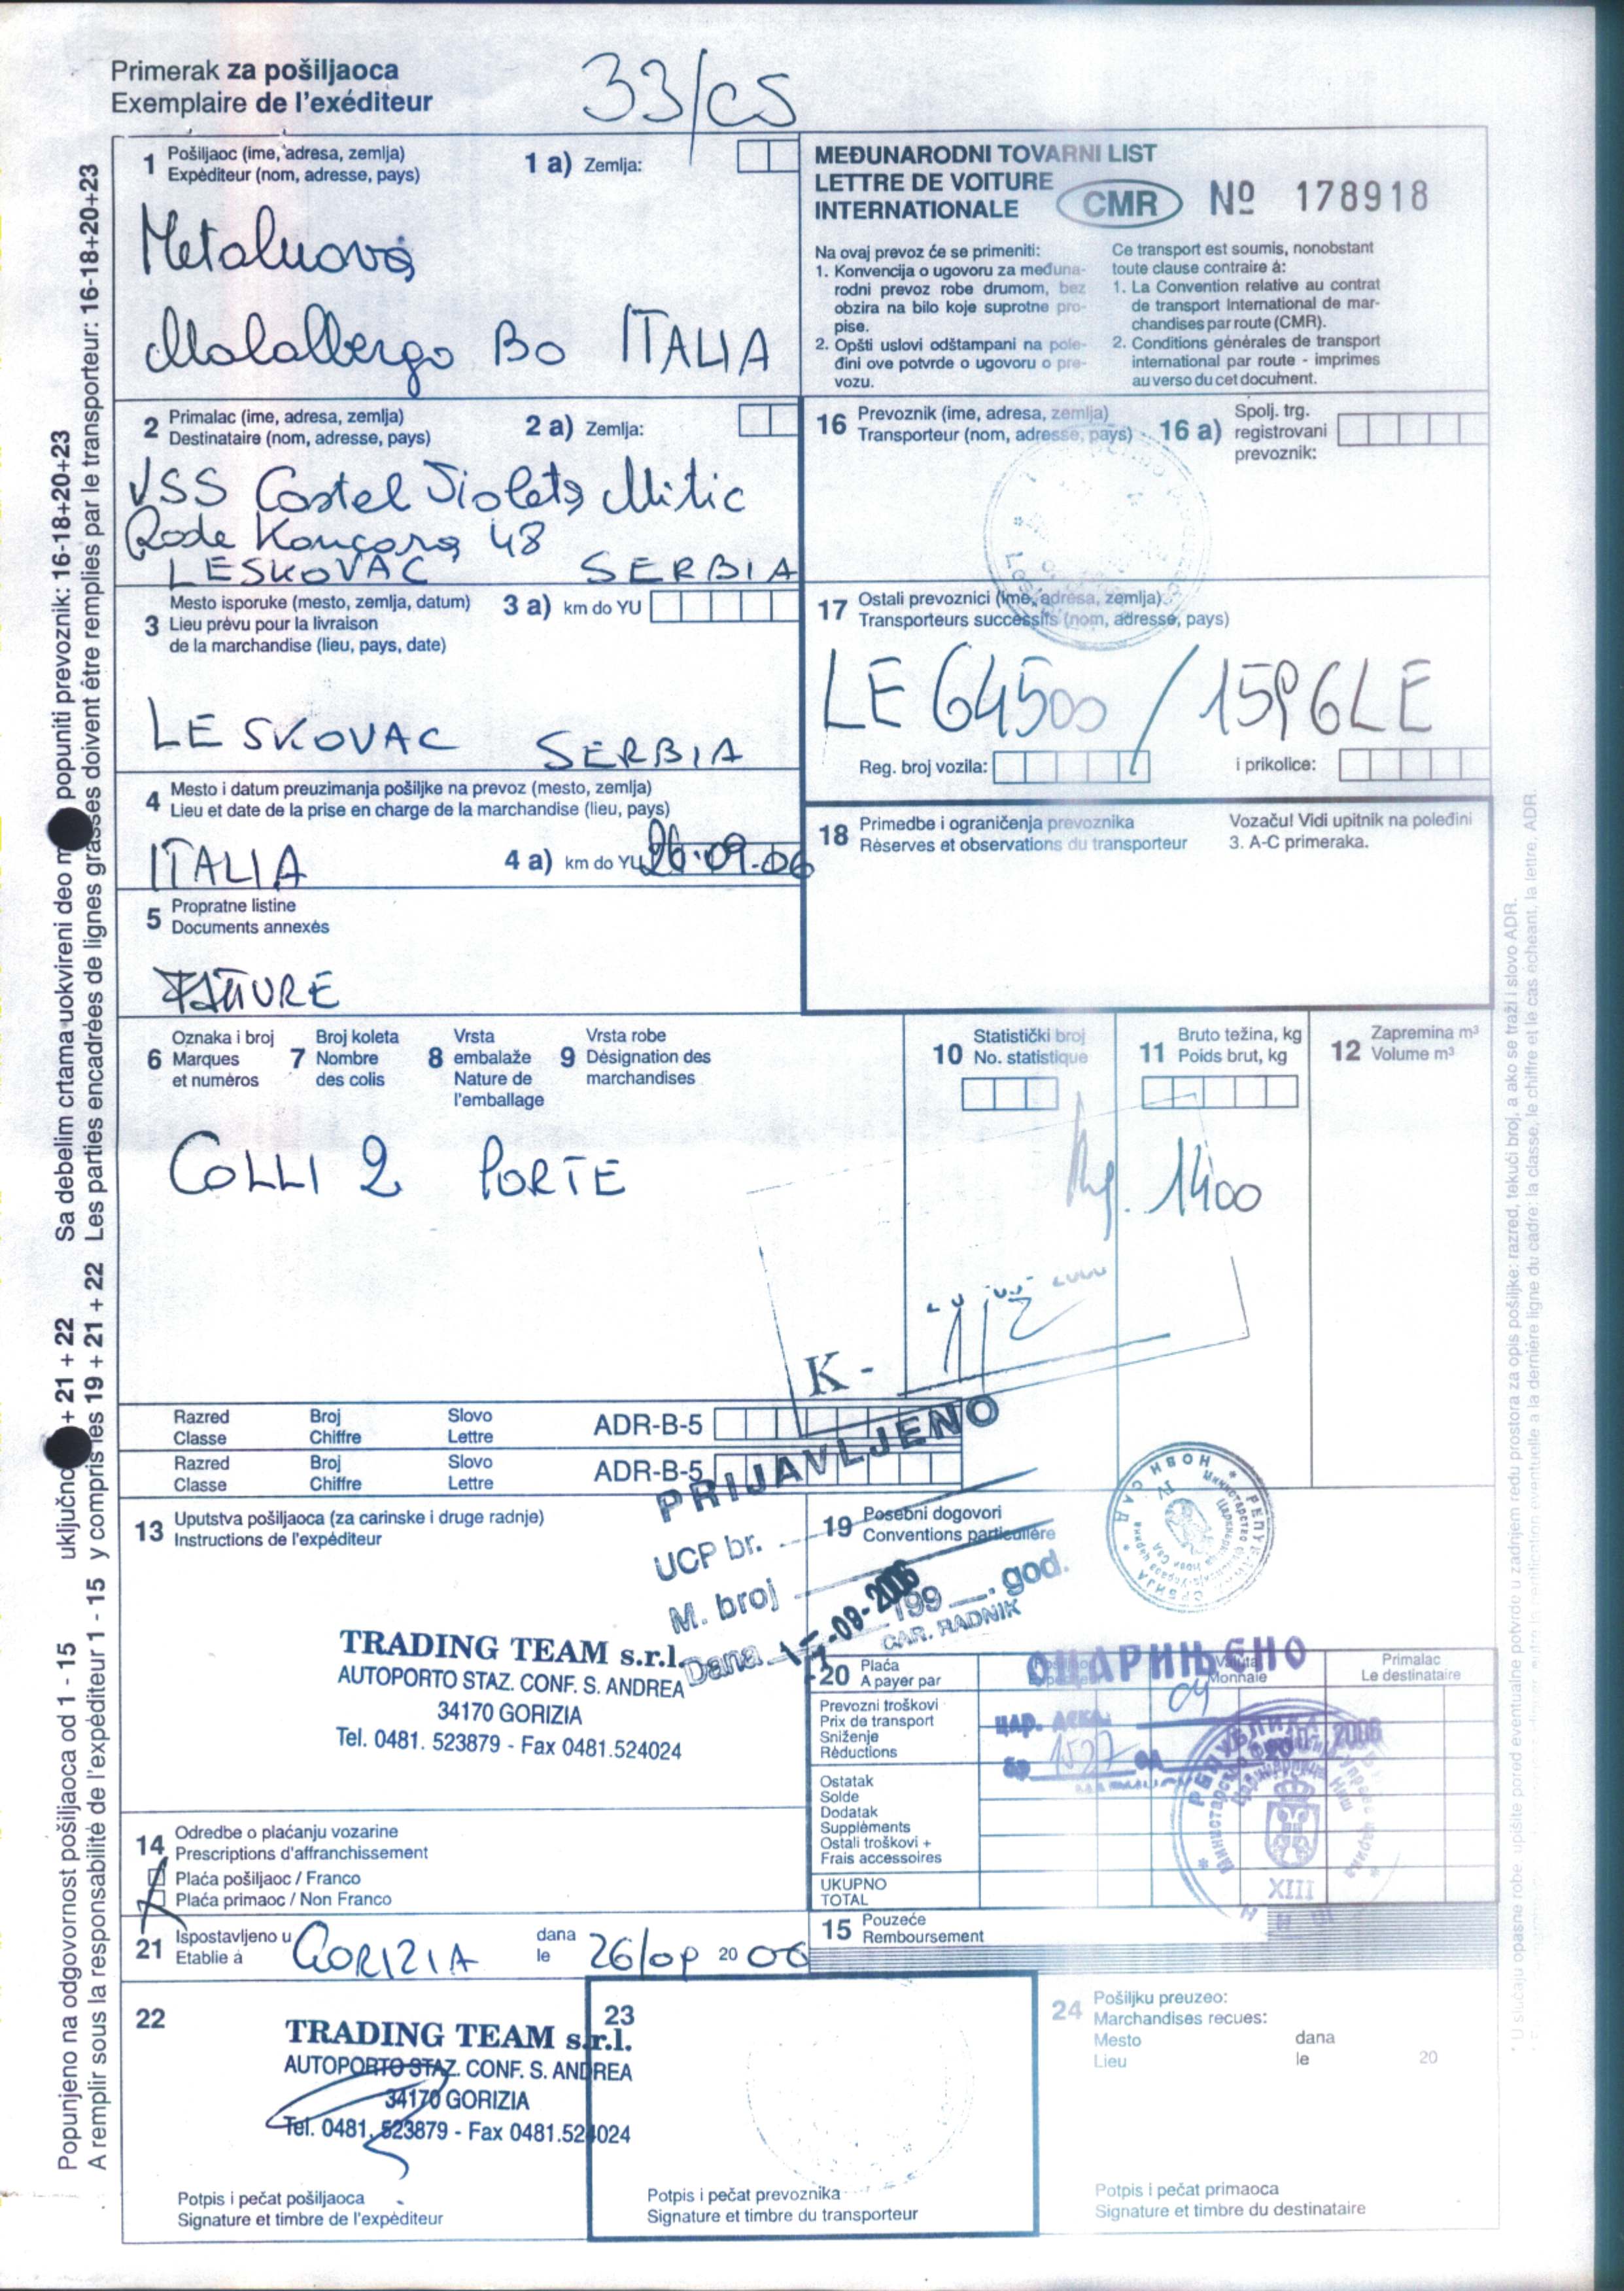 Primerak za pošiljaoca
Exemplaire de l'exéditeur
33/CS
1 Pošiljaoc (ime, adresa, zemlja)
Expéditeur (nom, adresse, pays)
1 a) Zemlja:
Metalnova
Malalbergo BO ITALIA
MEĐUNARODNI TOVARNI LIST
LETTRE DE VOITURE
INTERNATIONALE
CMR
Nº 178918
Na ovaj prevoz će se primeniti:
1. Konvencija o ugovoru za međuna-
rodni prevoz robe drumom, bez
obzira na bilo koje suprotne pro-
pise.
2. Opšti uslovi odštampani na pole-
đini ove potvrde o ugovoru o pre-
vozu.
Ce transport est soumis, nonobstant
toute clause contraire á:
1. La Convention relative au contrat
de transport International de mar-
chandises par route (CMR).
2. Conditions générales de transport
international par route - imprimes
au verso du cet document.
2 Primalac (ime, adresa, zemlja)
Destinataire (nom, adresse, pays)
2 a) Zemlja:
VSS Castel Violeta Mitic
Rade Koncara 48
LESKOVAC SERBIA
16 Prevoznik (ime, adresa, zemlja)
Transporteur (nom, adresse, pays)
16 a) Spolj. trg.
registrovani
prevoznik:
3 Mesto isporuke (mesto, zemlja, datum)
Lieu prévu pour la livraison
de la marchandise (lieu, pays, date)
3 a) km do YU
LESKOVAC SERBIA
17 Ostali prevoznici (ime, adresa, zemlja)
Transporteurs successifs (nom, adresse, pays)
LE 64500 / 1596LE
Reg. broj vozila:
i prikolice:
4 Mesto i datum preuzimanja pošiljke na prevoz (mesto, zemlja)
Lieu et date de la prise en charge de la marchandise (lieu, pays)
ITALIA
4 a) km do YU 26.09.06
18 Primedbe i ograničenja prevoznika
Réserves et observations du transporteur
Vozaču! Vidi upitnik na poleđini
3. A-C primeraka.
5 Propratne listine
Documents annexés
FATTURE
6 Oznaka i broj
Marques
et numéros
7 Broj koleta
Nombre
des colis
8 Vrsta
embalaže
Nature de
l'emballage
9 Vrsta robe
Désignation des
marchandises
10 Statistički broj
No. statistique
11 Bruto težina, kg
Poids brut, kg
12 Zapremina m³
Volume m³
COLLI 2 PORTE
Kg. 1400
K -
Razred
Classe
Broj
Chiffre
Slovo
Lettre
ADR-B-5
Razred
Classe
Broj
Chiffre
Slovo
Lettre
ADR-B-5
PRIJAVLJENO
UCP br.
M. broj
Dana -09-2006 199 god.
CAR. RADNIK
13 Uputstva pošiljaoca (za carinske i druge radnje)
Instructions de l'expéditeur
TRADING TEAM s.r.l.
AUTOPORTO STAZ. CONF. S. ANDREA
34170 GORIZIA
Tel. 0481. 523879 - Fax 0481.524024
19 Posebni dogovori
Conventions particulière
20 Plaća
A payer par
Valuta
Monnaie
Primalac
Le destinataire
ОЦАРИЊЕНО
Prevozni troškovi
Prix de transport
Sniženje
Réductions
Ostatak
Solde
Dodatak
Suppléments
Ostali troškovi +
Frais accessoires
UKUPNO
TOTAL
2006
РЕПУБЛИКА
XIII
14 Odredbe o plaćanju vozarine
Prescriptions d'affranchissement
Plaća pošiljaoc / Franco
Plaća primaoc / Non Franco
15 Pouzeće
Remboursement
21 Ispostavljeno u
Etablie á
GORIZIA
dana
le
26/09 20 06
22
TRADING TEAM s.r.l.
AUTOPORTO STAZ. CONF. S. ANDREA
34170 GORIZIA
Tel. 0481. 523879 - Fax 0481.524024
Potpis i pečat pošiljaoca
Signature et timbre de l'expéditeur
23
Potpis i pečat prevoznika
Signature et timbre du transporteur
24 Pošiljku preuzeo:
Marchandises recues:
Mesto
Lieu
dana
le
20
Potpis i pečat primaoca
Signature et timbre du destinataire
Popunjeno na odgovornost pošiljaoca od 1 - 15 uključno + 21 + 22 Sa debelim crtama uokvireni deo popuniti prevoznik: 16-18+20+23
A remplir sous la responsabilité de l'expéditeur 1 - 15 y compris les 19 + 21 + 22 Les parties encadrées de lignes grasses doivent être remplies par le transporteur: 16-18+20+23